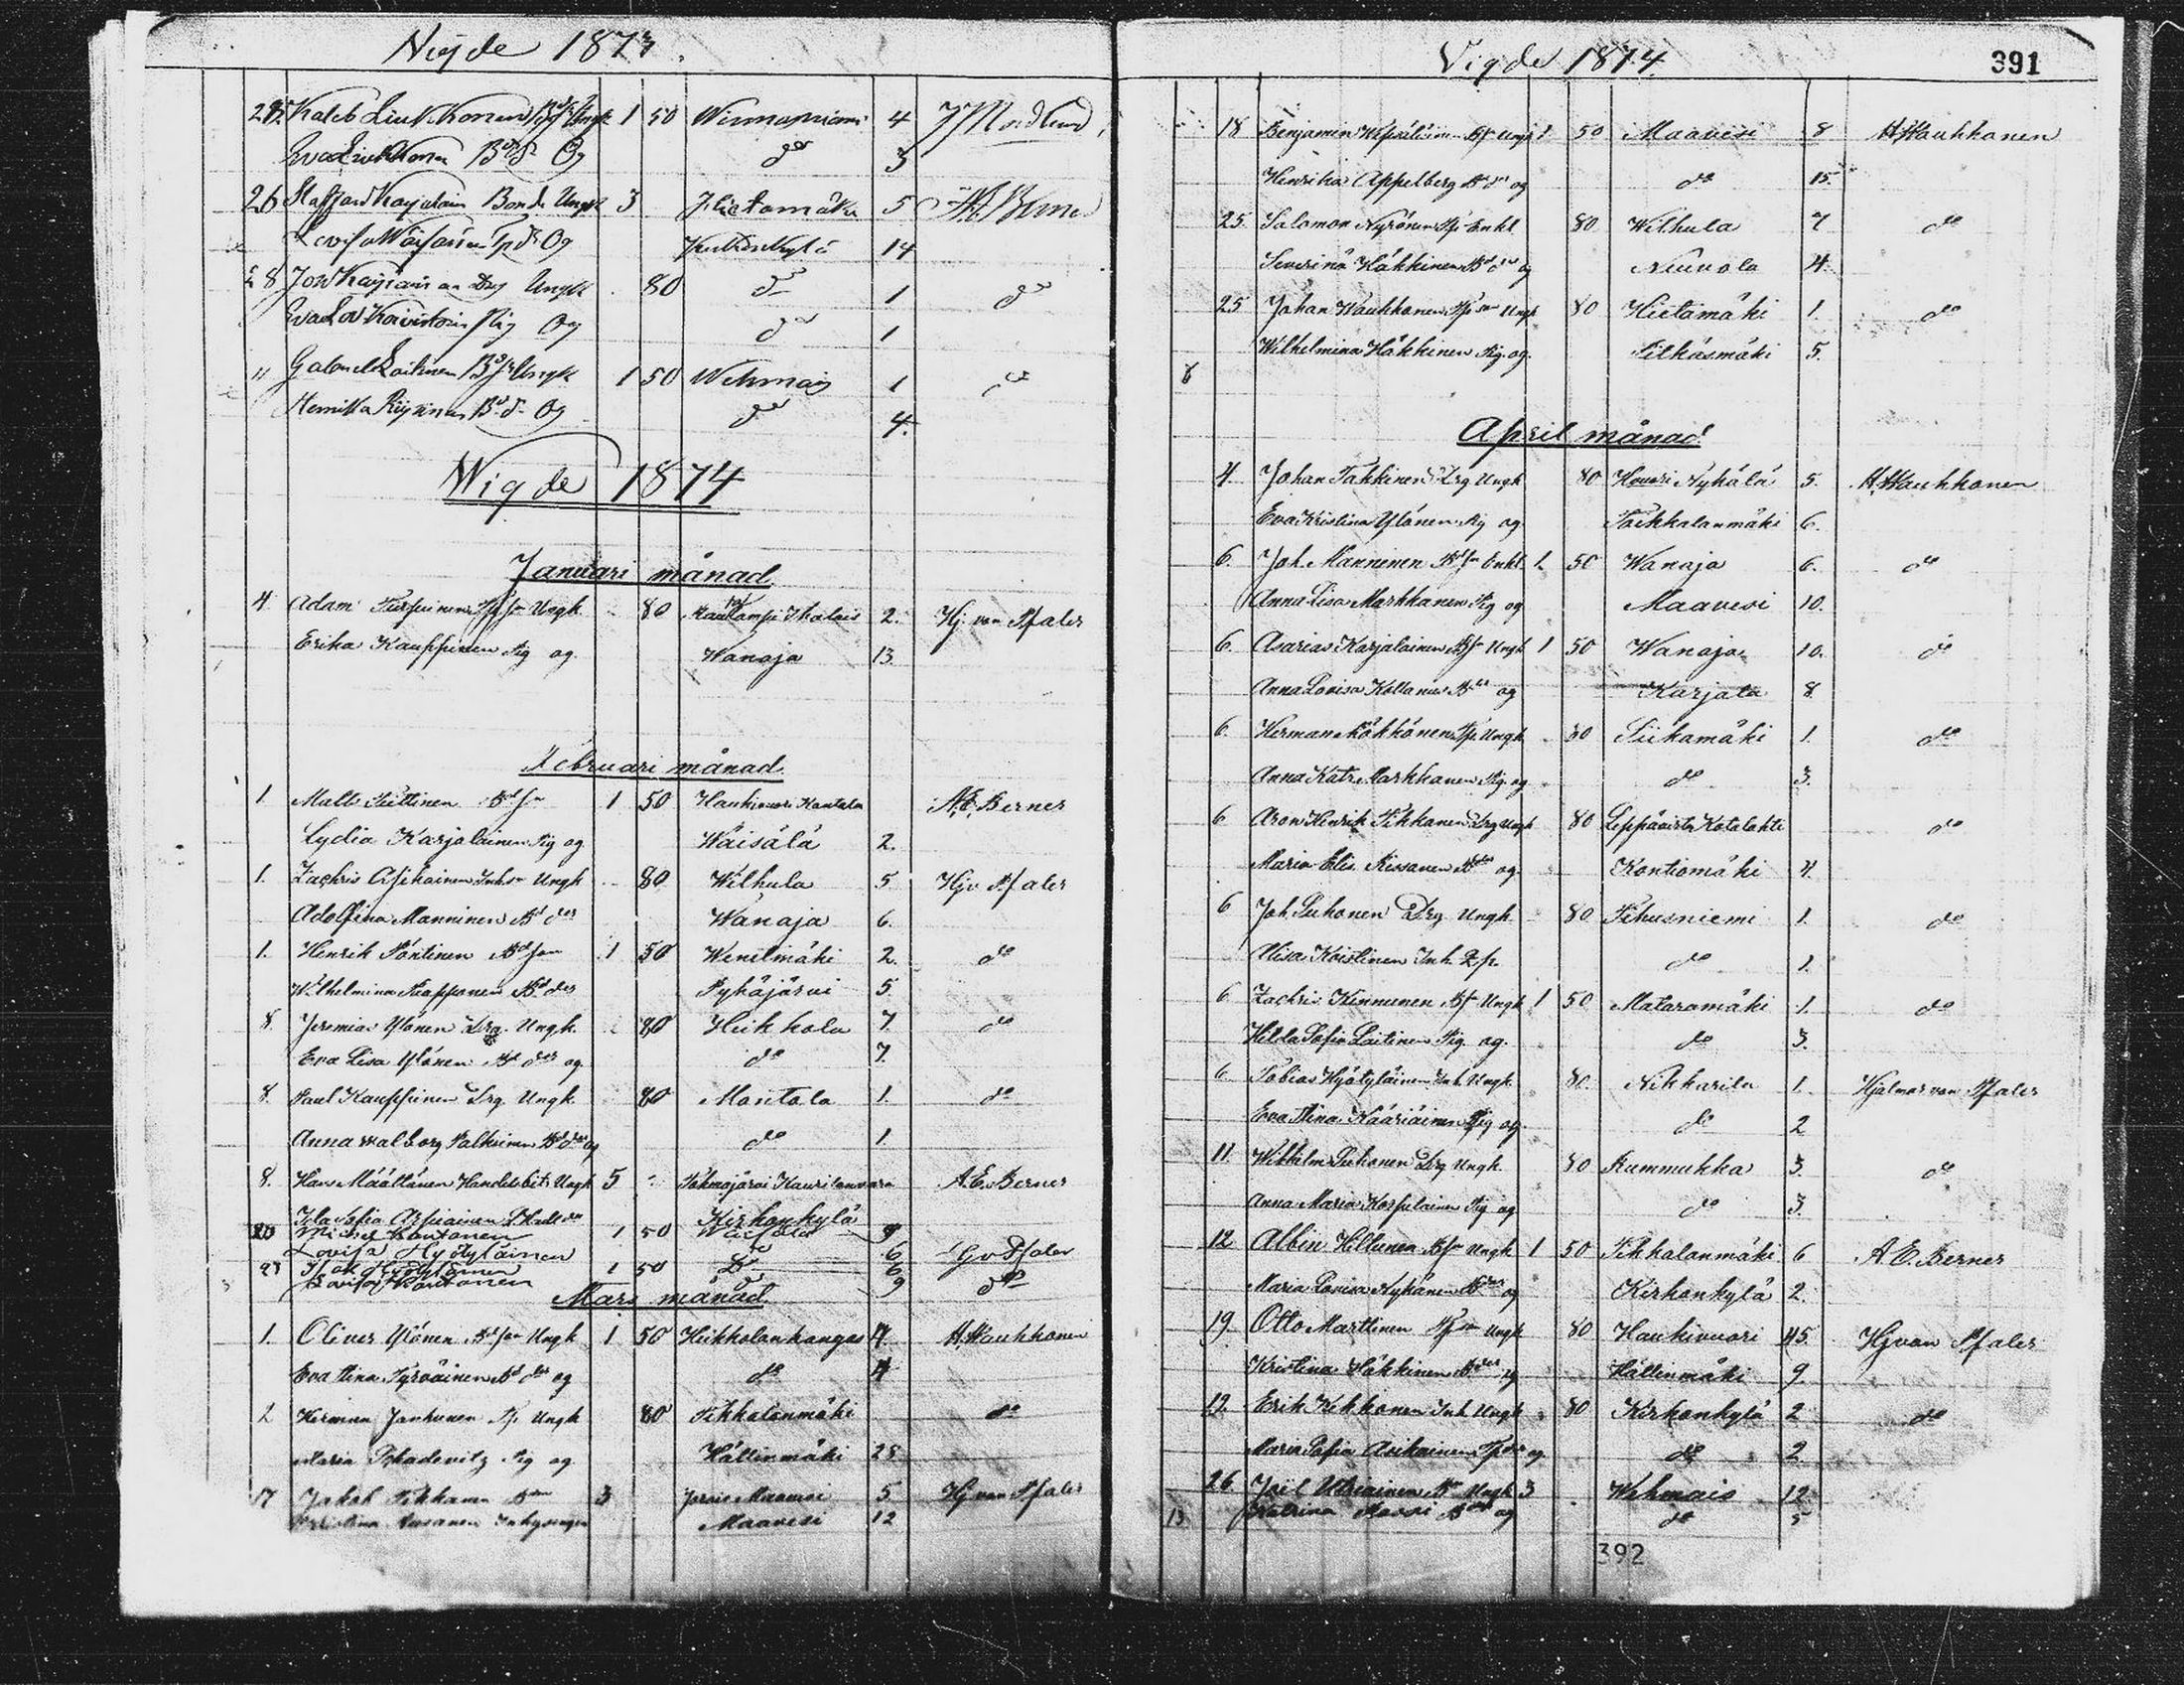 Vigde 1873.
28. Kaleb Liukkonen Bdsn Ungk 1 50 Wennamäni 4 J Nordlund
Eva Liukkonen Bd dr Og do 3
26 Staffan Karjalain Bonde Ungk 3 Hietamäki 5 A E Berner
Lovisa Wäisänen Tp dr Og Kirkonkylä 14
28 Josef Karjalainen Drg Ungk 80 do 1 do
Eva Lov Koivistoin Pig Og do 1
" Gabriel Laitinen Bdsn Ungk 1 50 Wehmais 1 do
Henrikka Riipinen Bd dr Og do 4.
Wigde 1874
Januari månad
4 Adam Turpeinen Tpsn Ungk 80 2. Hj. von Pfaler
Erika Kauppinen Pig og Wanaja 13
Februari månad
1 Matts Tiettinen Bdsn 1 50 Haukivuori Kantala A.E. Berner
Lydia Karjalainen Pig og Wäisälä 2.
1. Zachris Asikainen Inhsn Ungk 80 Wilhula 5 Hj v Pfaler
Adolfina Manninen Bd der Wanaja 6.
1. Henrik Pöntinen Bdson 1 50 Wenetmäki 2. do
Wilhelmina Reapponen Bd der Pyhäjärvi 5.
8. Jeremias Ylönen Drg. Ungk. 80 Heikkola 7. do
Eva Lisa Ylönen Bd der og do 7.
8. Paul Kauppinen Drg. Ungk 80 Montola 1. do
Anna Walborg Palkinen Bd der og do 1.
8. Hans Määttänen Handelsbetr Ungk 5 Tohmajärvi Kaurilanvaara A.E. Berner
Ida Sofia Asikainen Kirkonkylä
20 Michel Kantanen 1 50 Waisälä 9
Lovisa Hyötyläinen do 6 Hj v Pfaler
21 Isak Hyötyläinen 1 50 do 6
Lovisa Kantanen do 9 do
Mars månad
1. Oliver Ylönen Bdson Ungk 1 50 Heikkolankangas 4. H. Haukkanen
Eva Stina Tyrväinen Bd der og do 4
2 Herman Janhunen Tp Ungk 80 Pikkalanmäki do
Maria Schadevitz Pig og Hällinmäki 28
17 Jakob Tikkanen Bson 3 Jorois Maavesi 5. Hj von Pfaler
Kristina Maavesi 12
Vigde 1874 391
18 Benjamin Wepsäläinen Bsn Ungk 1 50 Maavesi 8 H Haukkanen
Henrika Appelberg Bd dr og do 15.
25. Salomon Nyrönen Tp Enkl 80 Wilhula 7 do
Severina Häkkinen Bd der og Neuvola 4.
25 Johan Haukkanen Tpson Ungk 80 Hietamäki 1. do
Wilhelmina Häkkinen Pig. og. Pitkäsmäki 5.
6
April månad
4. Johan Takkinen Drg Ungk 80 Nykälä 5. H. Haukkanen
Eva Kristina Ylönen Pig og Paikkalanmäki 6.
6. Joh. Manninen Bdsn Enkl. 1 50 Wanaja 6. do
Anna Lisa Markkanen Pig og Maavesi 10.
6. Asarias Karjalainen Bsn Ungk 1 50 Wanaja 10. do
Anna Lovisa Kottanen Bdr og Karjala 8
6. Herman Kökkönen Tp Ungk 80 Siikamäki 1. do
Anna Katr. Markkanen Pig og do 3.
6 Aron Henrik Tikkanen Drg Ungk 80 Leppävirta Kotalahti do
Maria Elis Rissanen Bder og Kontiomäki 4.
6 Joh. Puhonen Drg Ungk 80 Pihusniemi 1. do
Alisa Koistinen Inh. Pp. do 1.
6. Zachris Kinnunen Bsn Ungk 1 50 Mataramäki 1. do
Hilda Sofia Laitinen Pig. og. do 3.
6. Tobias Hyötyläinen Inh Ungk 80. Nikkarila 1. Hjalmar von Pfaler
Eva Stina Kääriäinen Pig og do 2
11. Wilhelm Puhonen Drg Ungk 80 Rummukka 3. do
Anna Maria Korpelainen Pig og do 3.
12. Albin Hiltunen Bsn Ungk 1 50 Pikkalanmäki 6 A.E. Berner
Maria Lovisa Nykänen Bder og Kirkonkylä 2.
19. Otto Marttinen Tpson Ungk 80 Haukivuori 45. Hj von Pfaler
Kristina Häkkinen Bder og Hällinmäki 9.
12. Erik Kekkonen Inh Ungk 80 Kirkonkylä 2 do
Maria Sofia Asikainen Tpdr og do 2
26. Joel Utriainen Bsn Ungk 3 Wehmais 12
13 Katrina Massi Bder og do 5
392